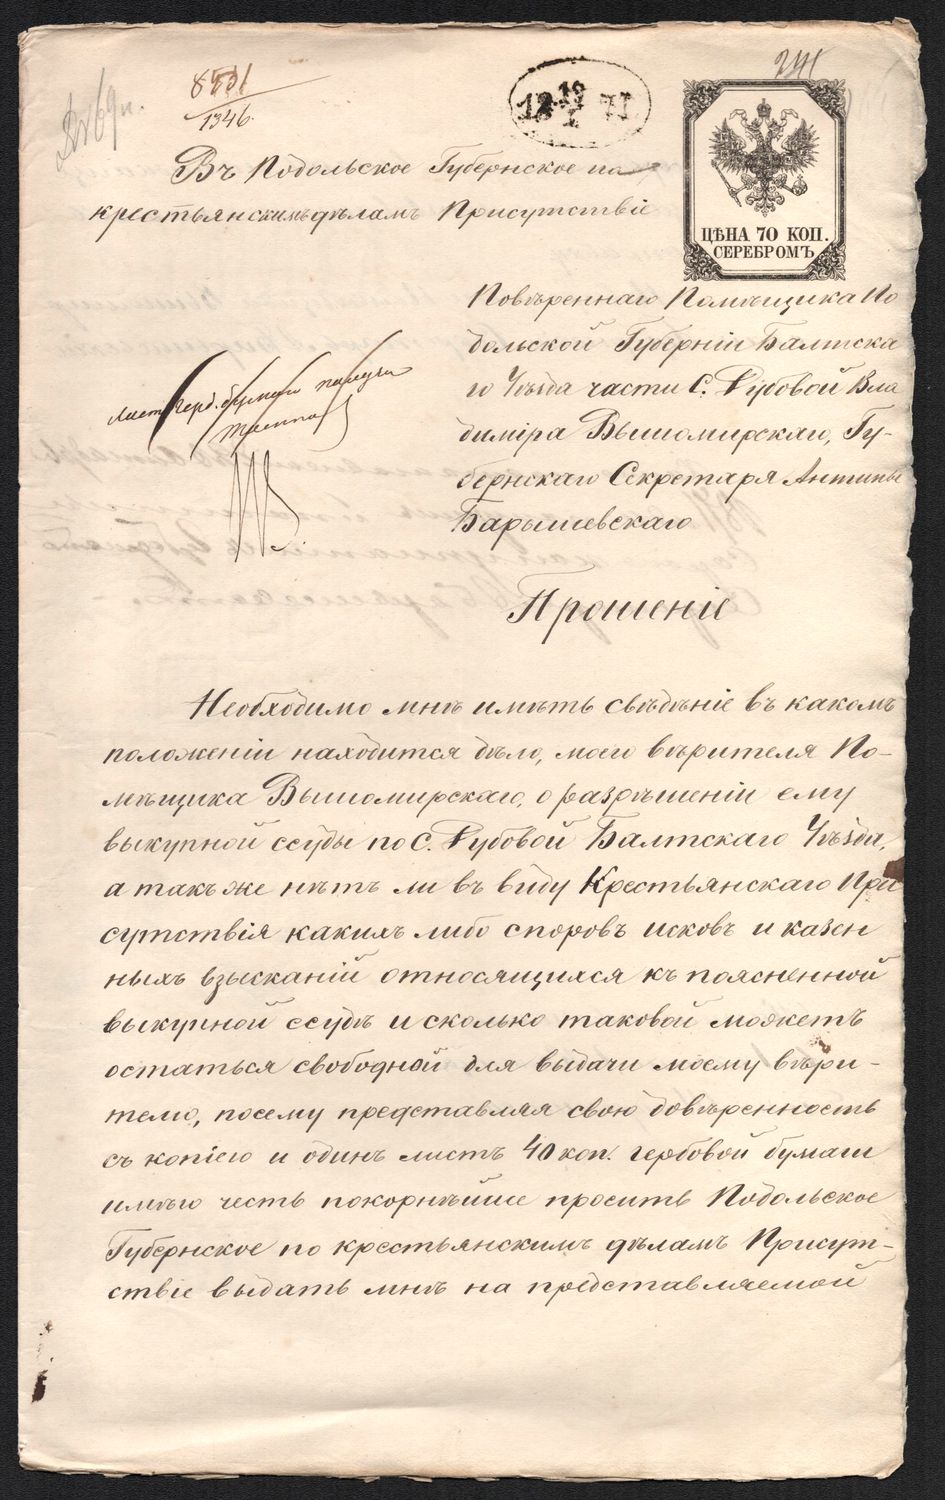 241
8531
1346.
18 19/I 71
Въ Подольское Губернское по
крестьянскимъ дѣламъ Присутствіе
ЦѢНА 70 КОП.
СЕРЕБРОМЪ
Повѣреннаго Помѣщика По
дольской Губерніи Балтска
го Уѣзда части С. Рубовой Вла
диміра Вышомирскаго, Гу-
бернскаго Секретаря Антипы
Барышевскаго
листъ герб. бумаги получи
Прошеніе
Необходимо мнѣ имѣть свѣдѣніе въ какомъ
положеніи находится дѣло, моего вѣрителя По-
мѣщика Вышомирскаго, о разрѣшеніи ему
выкупной ссуды по С. Рубовой Балтскаго Уѣзда,
а такъ же нѣтъ ли въ виду Крестьянскаго При
сутствія какихъ либо споровъ исковъ и казен
ныхъ взысканій относящихся къ поясненной
выкупной ссудѣ и сколько таковой можетъ
остаться свободной для выдачи моему вѣри-
телю, посему представляя свою довѣренность
съ копіею и одинъ листъ 40 коп. гербовой бумаги
имѣю честь покорнѣйше просить Подольское
Губернское по крестьянскимъ дѣламъ Присут-
ствіе выдать мнѣ на представляемой